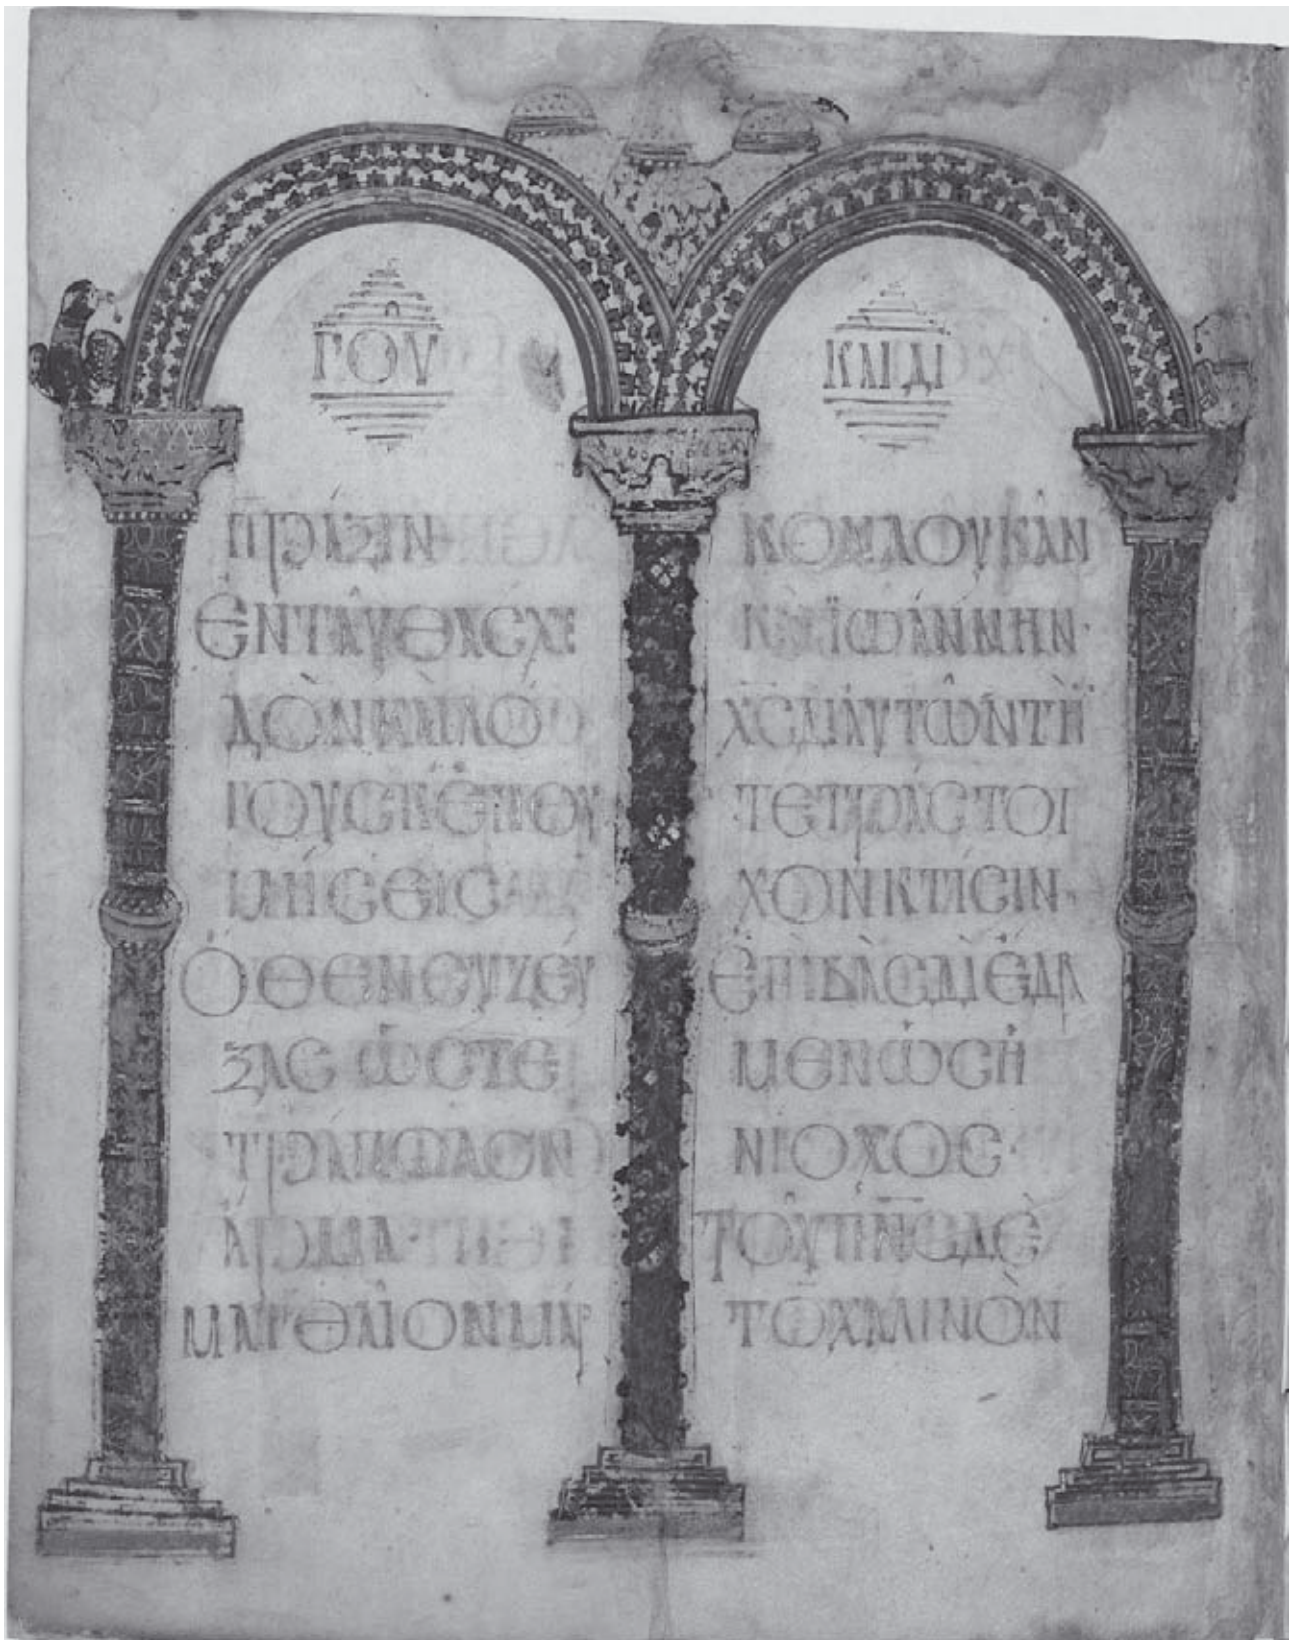 ΓΟΥ
ΚΑΙ ΔΙ
ΠΡΑΞΙΝ
ΕΝΤΑΥΘΑ ΣΧΕ
ΔΟΝ ΚΑΙ ΛΟ
ΓΟΥΣ Κ ΕΝΘΥ
ΜΗΣΕΙΣ
ΟΘΕΝ ΕΥ ΖΕΥ
ΞΑΣ ΩΣ ΤΕ
ΤΡΑΠΩΛΟΝ
ΑΡΜΑ·
ΜΑΤΘΑΙΟΝ ΜΑΡ
ΚΟΝ ΛΟΥΚΑΝ
ΚΑΙ ΙΩΑΝΝΗΝ·
ΧΣ ΔΙ ΑΥΤΩΝ ΤΗ
ΤΕΤΡΑΣΤΟΙ
ΧΟΝ ΚΤΙΣΙΝ·
ΕΠΙΒΑΣ ΔΙΕΔΡΑ
ΜΕΝ ΩΣ Η
ΝΙΟΧΟΣ·
ΤΟΥ ΠΝΣ ΔΕ
ΤΟ ΧΑΛΙΝΟΝ